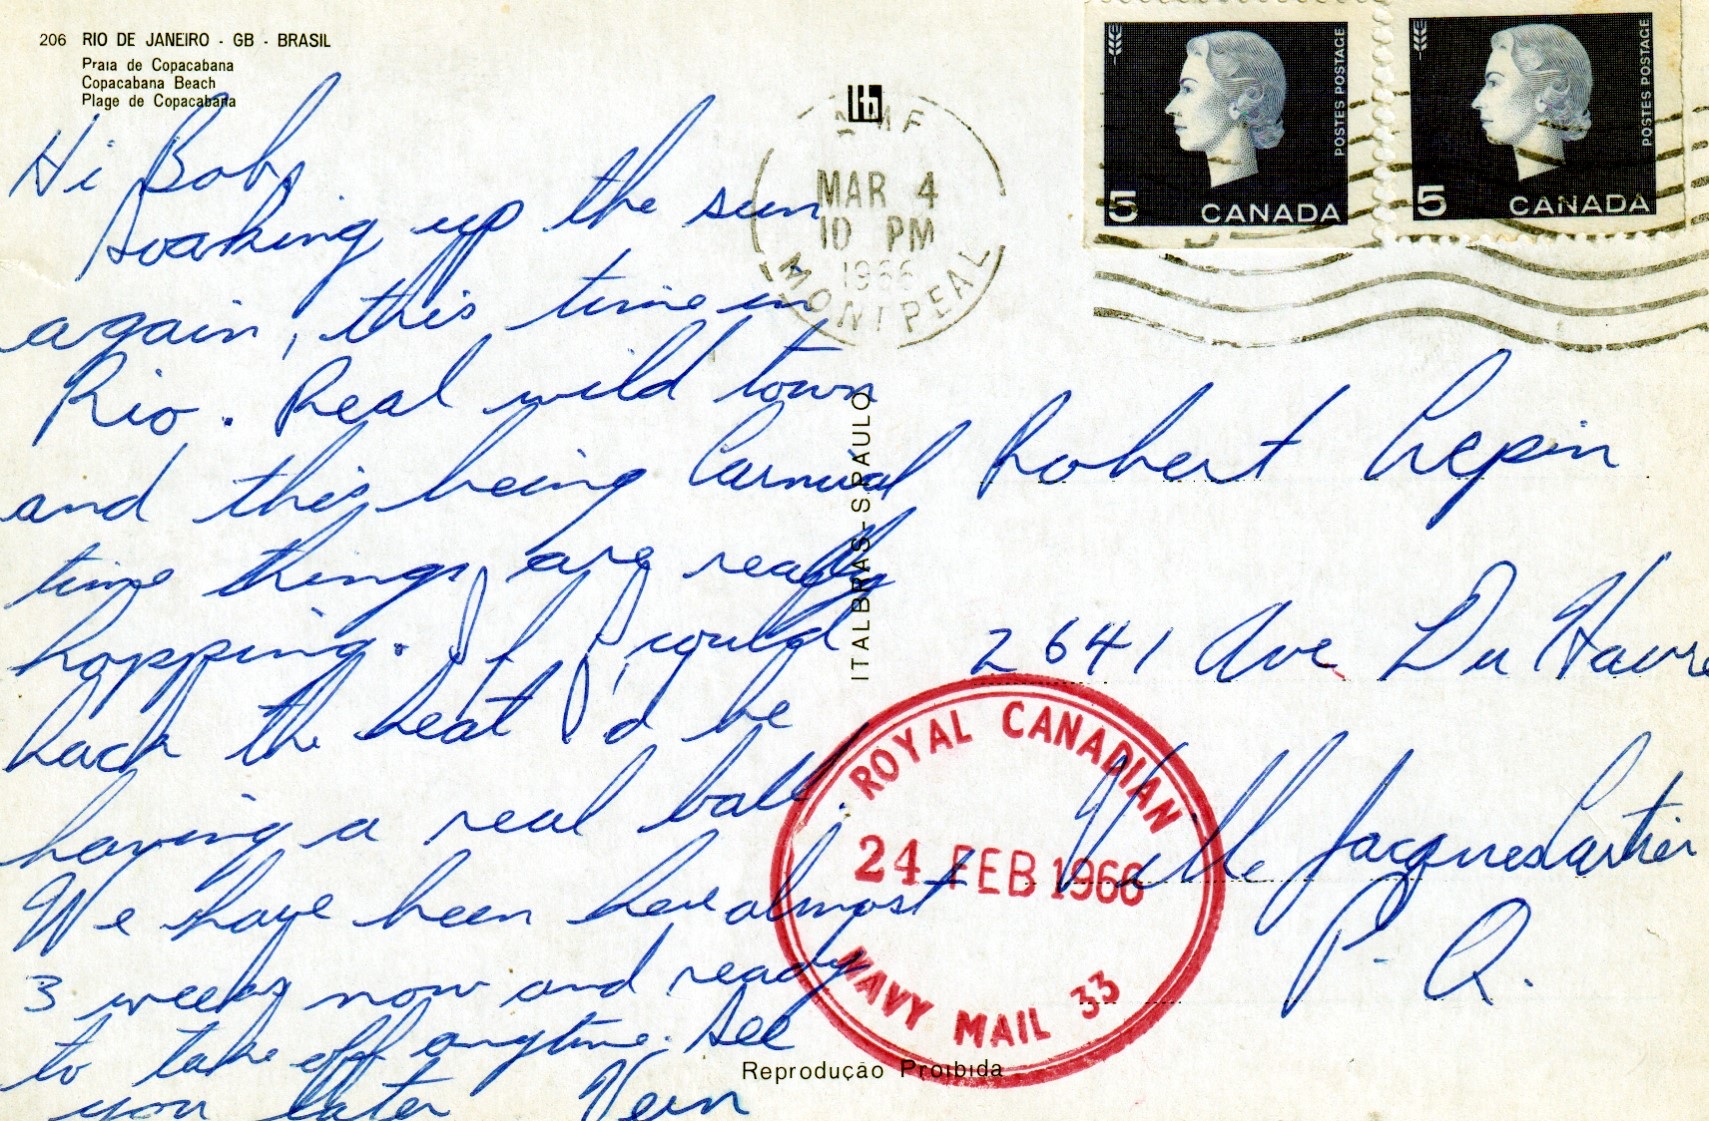 206 RIO DE JANEIRO - GB - BRASIL
Praia de Copacabana
Copacabana Beach
Plage de Copacabana
Hi Bob,
Soaking up the sun
again, this time in
Rio. Real wild town
and this being Carnival
time things are really
hopping. If I could
hack the heat I'd be
having a real ball.
We have been here almost
3 weeks now and ready
to take off anytime. See
you later Vern
MAR 4
10 PM
1966
MONTREAL
5 CANADA
POSTES POSTAGE
5 CANADA
POSTES POSTAGE
ITALBRAS - S. PAULO
Robert Crepin
2641 Ave Du Havre
Ville Jacques Cartier
P. Q.
ROYAL CANADIAN
24 FEB 1966
NAVY MAIL 33
Reprodução Proibida